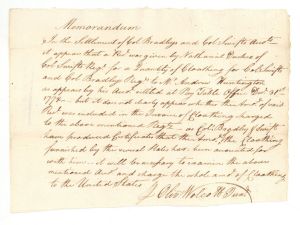 Memorandum
In the Settlement of Col Bradleys and Col Swifts Accts
it appears that a Rect was given by Nathaniel
Col Swifts Regt for a Quantity of Cloathing for Col Swifts
and Col Bradleys Regt to Mr Andrew Huntington
as appears by his Acct settled at Pay Table Office Decr
177 but it does not clearly appear whether the Amt of said
Rect was included in the Invoice of Cloathing charged
to the above mentioned Regts as Cols Bradley & Swift
have produced Certificates that the Cloathing
furnished by the several States has been accounted for
with him it will be necessary to examine the above
mentioned Acct and charge the whole amt of Cloathing
to the United States
Oliv Wolcott